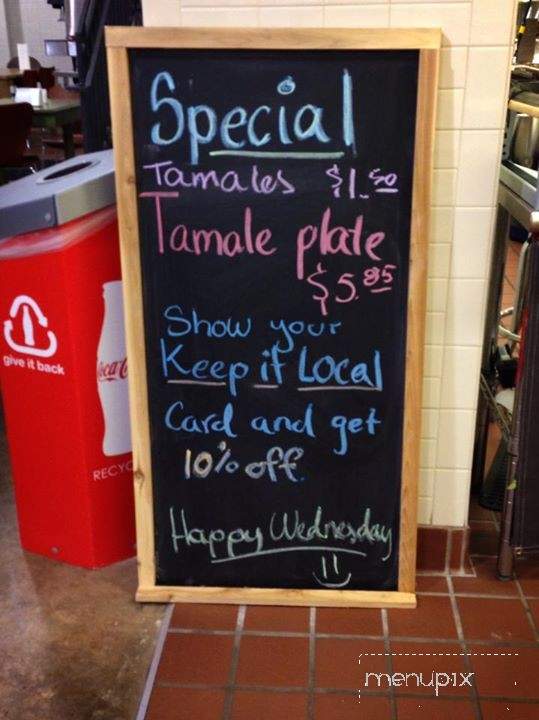 Special
Tamales $1.50
Tamale plate
$5.95
Show your
Keep it Local
Card and get
10% off.
Happy Wednesday
give it back
Coca-C
RECYC
menupix